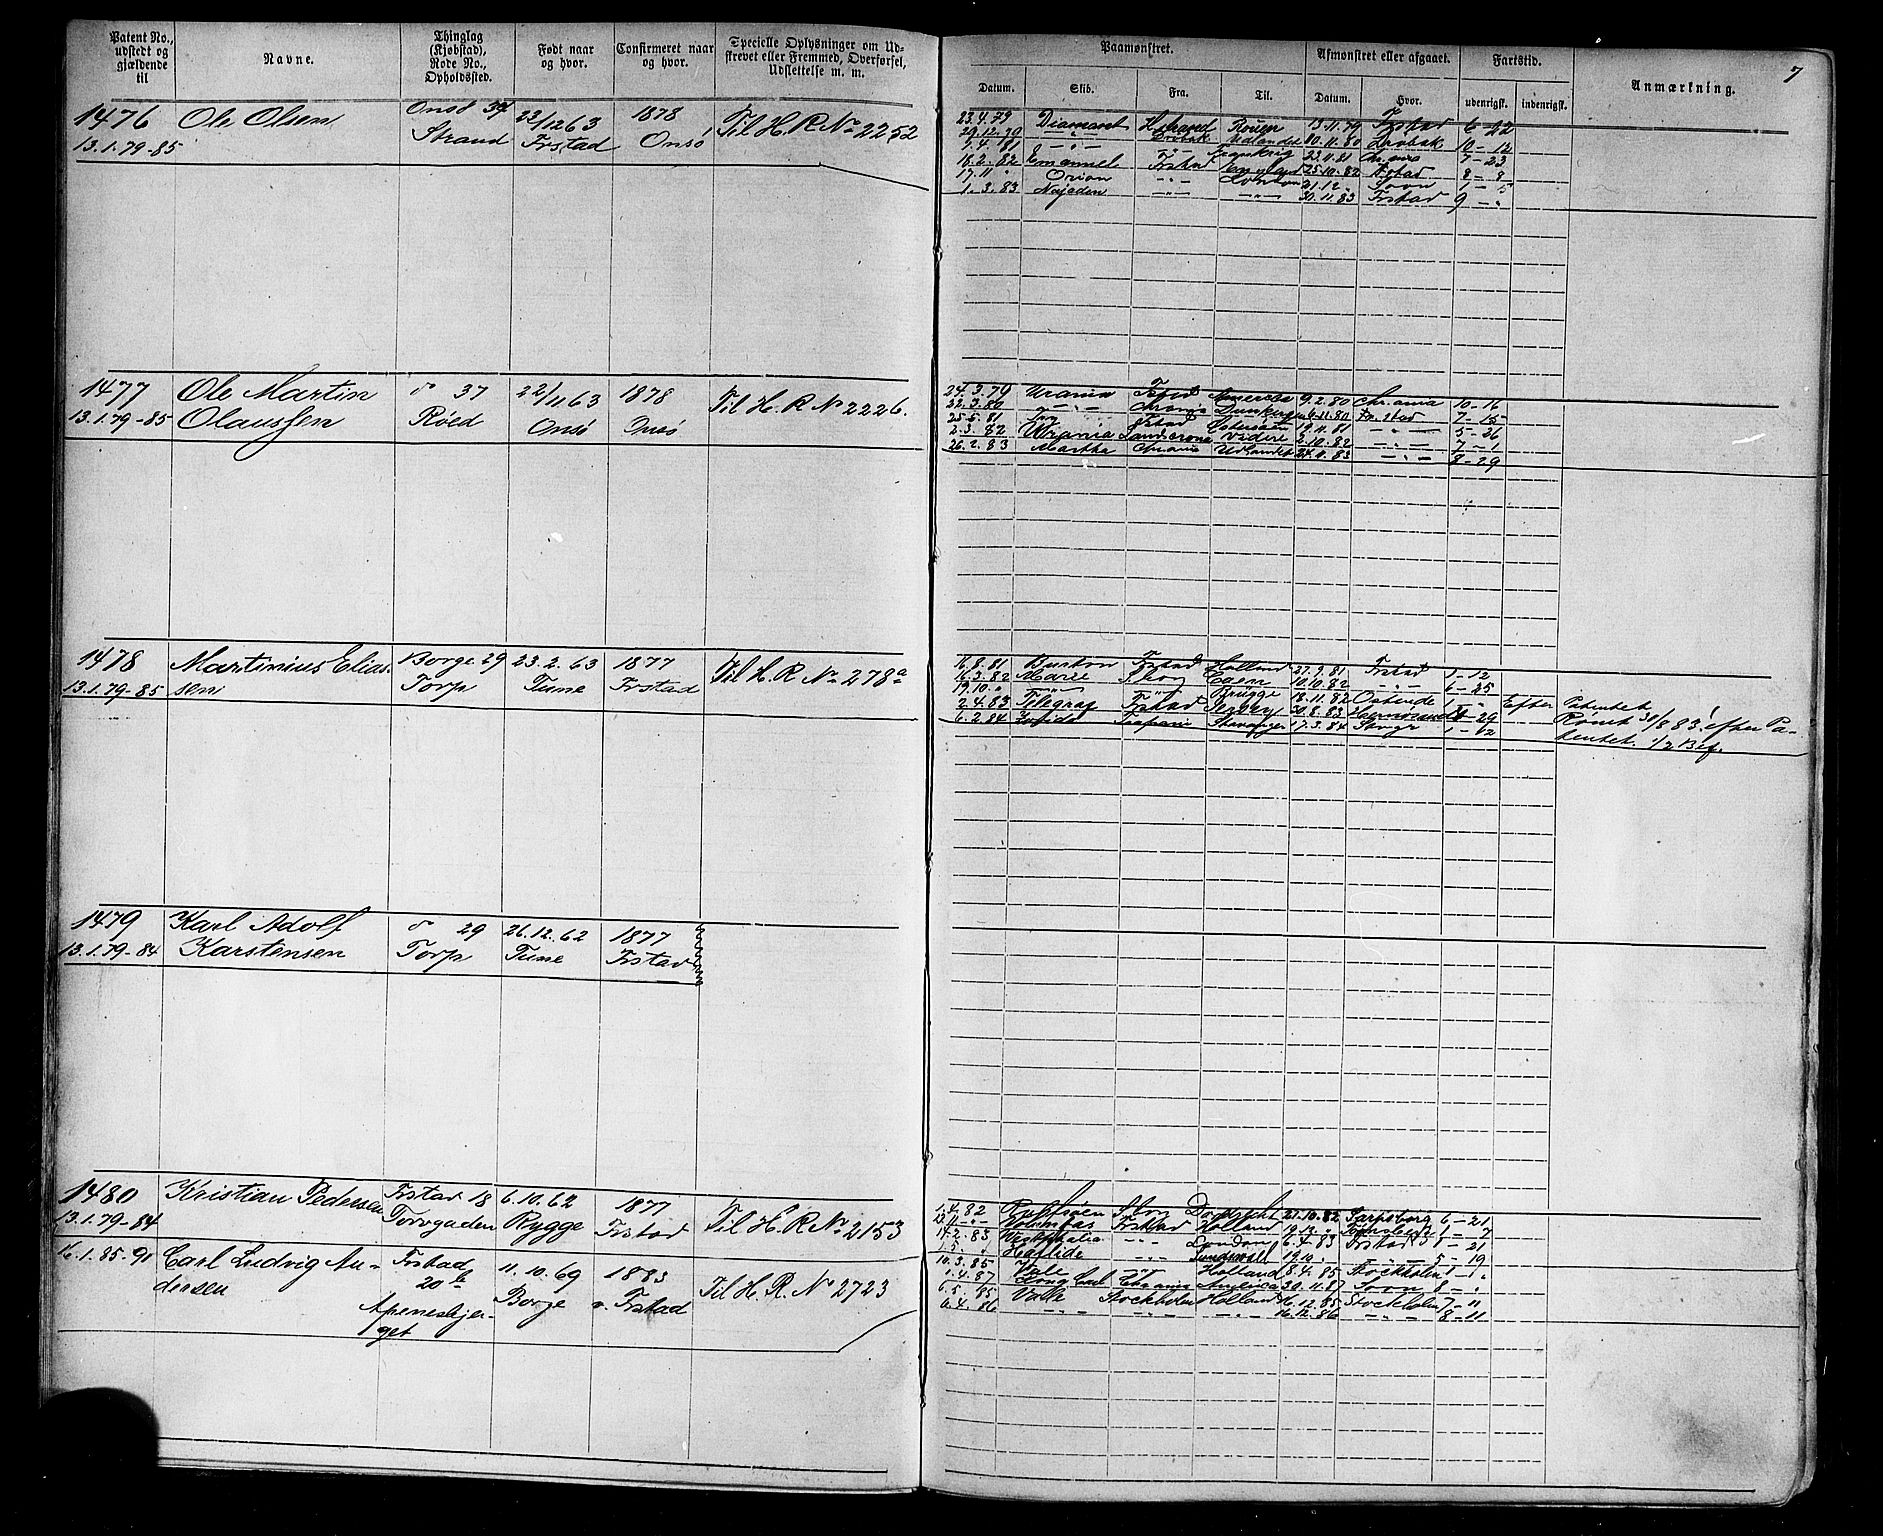 Patent No., udstedt og gjældende til
Navne.
Thinglag (Kjøbstad), Rode No., Opholdssted.
Født naar og hvor.
Confirmeret naar og hvor.
Specielle Oplysninger om Udskrevet eller Fremmed, Overførsel, Udslettelse m. m.
Paamønstret.
Afmønstret eller afgaaet.
Fartstid.
Anmærkning.
7
Datum. Skib. Fra. Til. Datum. Hvor. udenrigsk. indenrigsk.
1476 Ole Olsen Onsø 34 22/12 63 1878 Til H. R No 2252
13.1.79-85 Strand Frstad Onsø
23.4.79 Diamant Rouen 13.11.79 Frstad 6-22
29.12.79 -"- Drøbak Udlandet 10.11.80 Drøbak 10-12
7.4.81 -"- -"- Frankrig 23.11.81 7-23
18.2.82 Emanuel Frstad England 25.10.82 Frstad 8-8
17.11 " Orion -"- London 21.12 " Sovn 1-5
1.3.83 Najaden -"- -"- 30.11.83 Frstad 9-"
1477 Ole Martin " 37 22/11 63 1878 Til H. R No 2226.
13.1.79-85 Olaussen Røed Onsø Onsø
24.3.79 Urania Amerika 9.2.80 Chr.ania 10-16
22.3.80 -"- Chrania 6.11.80 Fr.stad 7-15
25.5.81 Frstad 19.11.81 -"- 5-26
2.3.82 Urania Landscrona Videre 2.10.82 -"- 7-1
26.2.83 Martha Chrania Udlandet 24.11.83 -"- 8-29
1478 Martinius Elias- Borge 29 23.2.63 1877 Til H. R No 278a
13.1.79-85 sen Torp Tune Frstad
16.8.81 Frstad Holland 27.9.81 Frstad 1-12
16.3.82 Marie Caen 10.10.82 -"- 6-25
19.10 " -"- -"- Brügge 18.11.82 Ostende 1 "
2.4.83 Telegraf Frstad 30.8.83 -29 Efter Patentet
6.2.84 Trapani Stavanger 17.3.84 1-12 Rømt 30/8 83. efter Pa-
tentet. 1/2 Bef.
1479 Karl Adolf " 29 26.12.62 1877
13.1.79-84 Karstensen Torp Tune Frstad
1480 Kristian Pedersen Frstad 18 6.10.62 1877 Til H. R No 2153
13.1.79-84 Torvgaden Rygge Frstad
1.4.82 Dordrecht 21.10.82 Sarpsborg 6-21
-"- Frstad Holland 19.12 " 1-7
14.2.83 Westphalia -"- London 6.4.83 Frstad 1-21
-"- Sundsvall 19.10 -"- 5-19
16.1.85-91 Carl Ludvig An- Frstad 11.10.69 1883 Til H. R. No 2723
dersen 20 b Borge v. Frstad
Apenesbjer-
get
10.3.85 Vale -"- Holland 8.4.85 Stockholm 1 "
1.4.87 Chrania America 30.11.87 Sovn 8-"
6.5.85 Vale Stockholm Holland 16.12.85 Stockholm 7-11
6.4.86 -"- -"- -"- 16.12.86 -"- 8-11